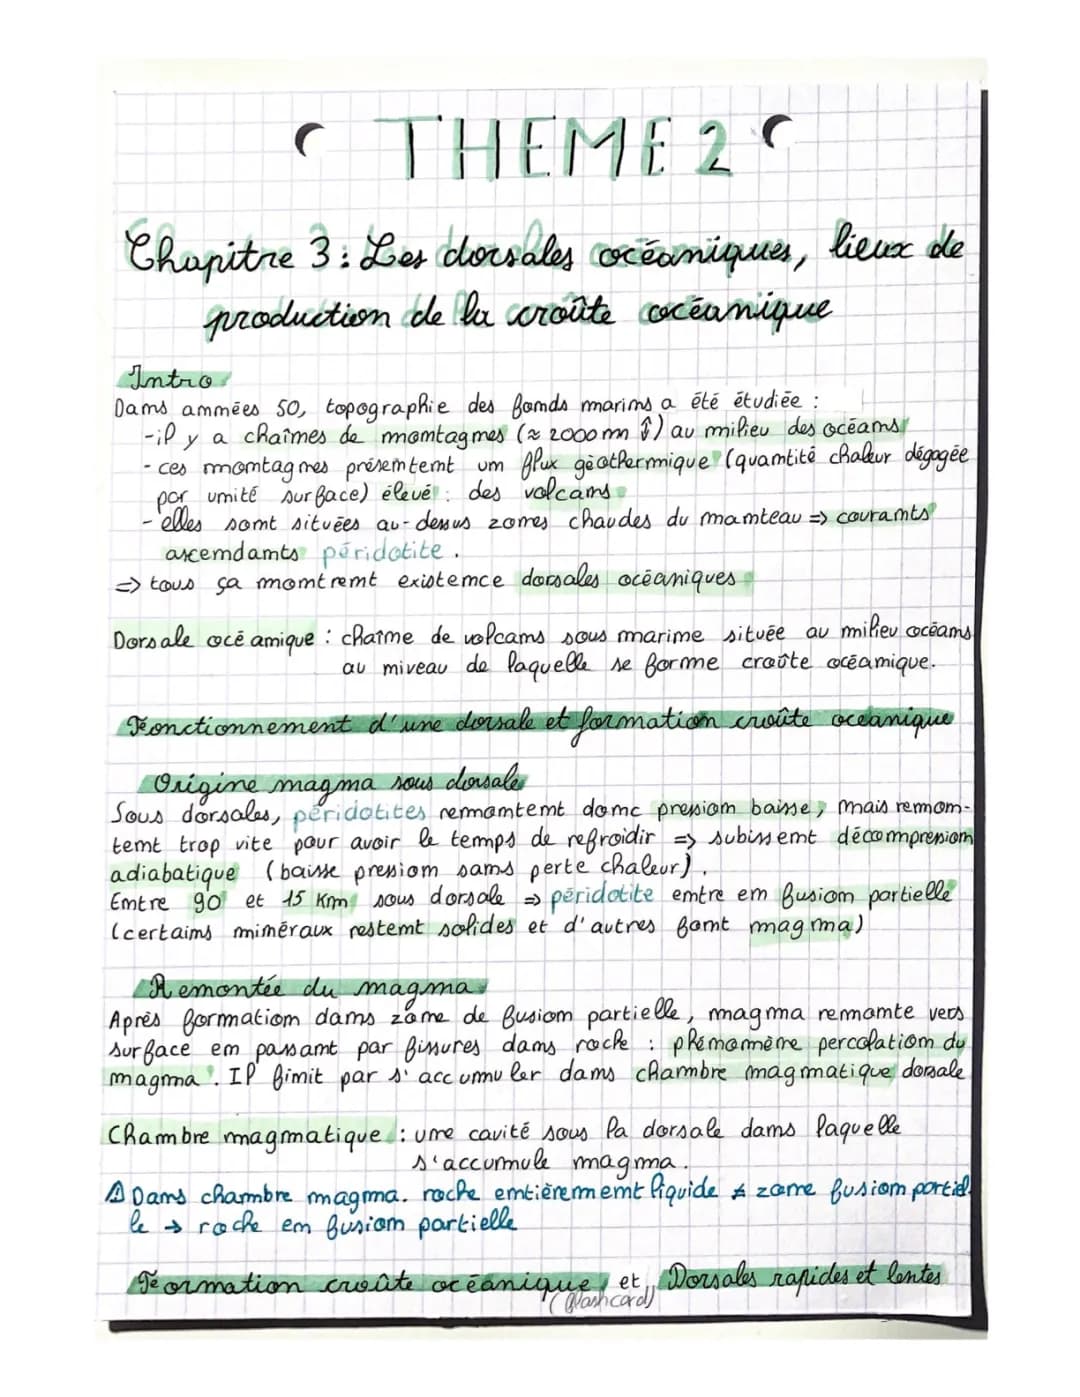 THEME 2
Chapitre 3 : Les dorsales océaniques, lieux de
production de la croûte océanique
Intro
Dans années 50, topographie des fonds marins a été étudiée :
-il y a chaînes de montagnes (≈ 2000 m ⇕) au milieu des océans
- ces montagnes présentent un flux géothermique (quantité chaleur dégagée
par unité surface) élevé : des volcans
- elles sont situées au-dessus zones chaudes du manteau => courants
ascendants péridotite.
=> tous ça montrent existence dorsales océaniques
Dorsale océanique : chaîne de volcans sous marine située au milieu océans
au niveau de laquelle se forme croûte océanique.
Fonctionnement d'une dorsale et formation croûte océanique
Origine magma sous dorsale
Sous dorsales, péridotites remontent donc pression baisse, mais remon-
tent trop vite pour avoir le temps de refroidir => subissent décompression
adiabatique (baisse pression sans perte chaleur).
Entre 90 et 15 Km sous dorsale => péridotite entre en fusion partielle
(certains minéraux restent solides et d'autres font magma)
Remontée du magma
Après formation dans zone de fusion partielle, magma remonte vers
surface en passant par fissures dans roche : phénomène percolation du
magma. Il finit par s'accumuler dans chambre magmatique dorsale
Chambre magmatique : une cavité sous la dorsale dans laquelle
s'accumule magma.
⚠ Dans chambre magma. roche entièrement liquide ≠ zone fusion partiel-
le → roche en fusion partielle
Formation croûte océanique et Dorsales rapides et lentes
(flashcard)